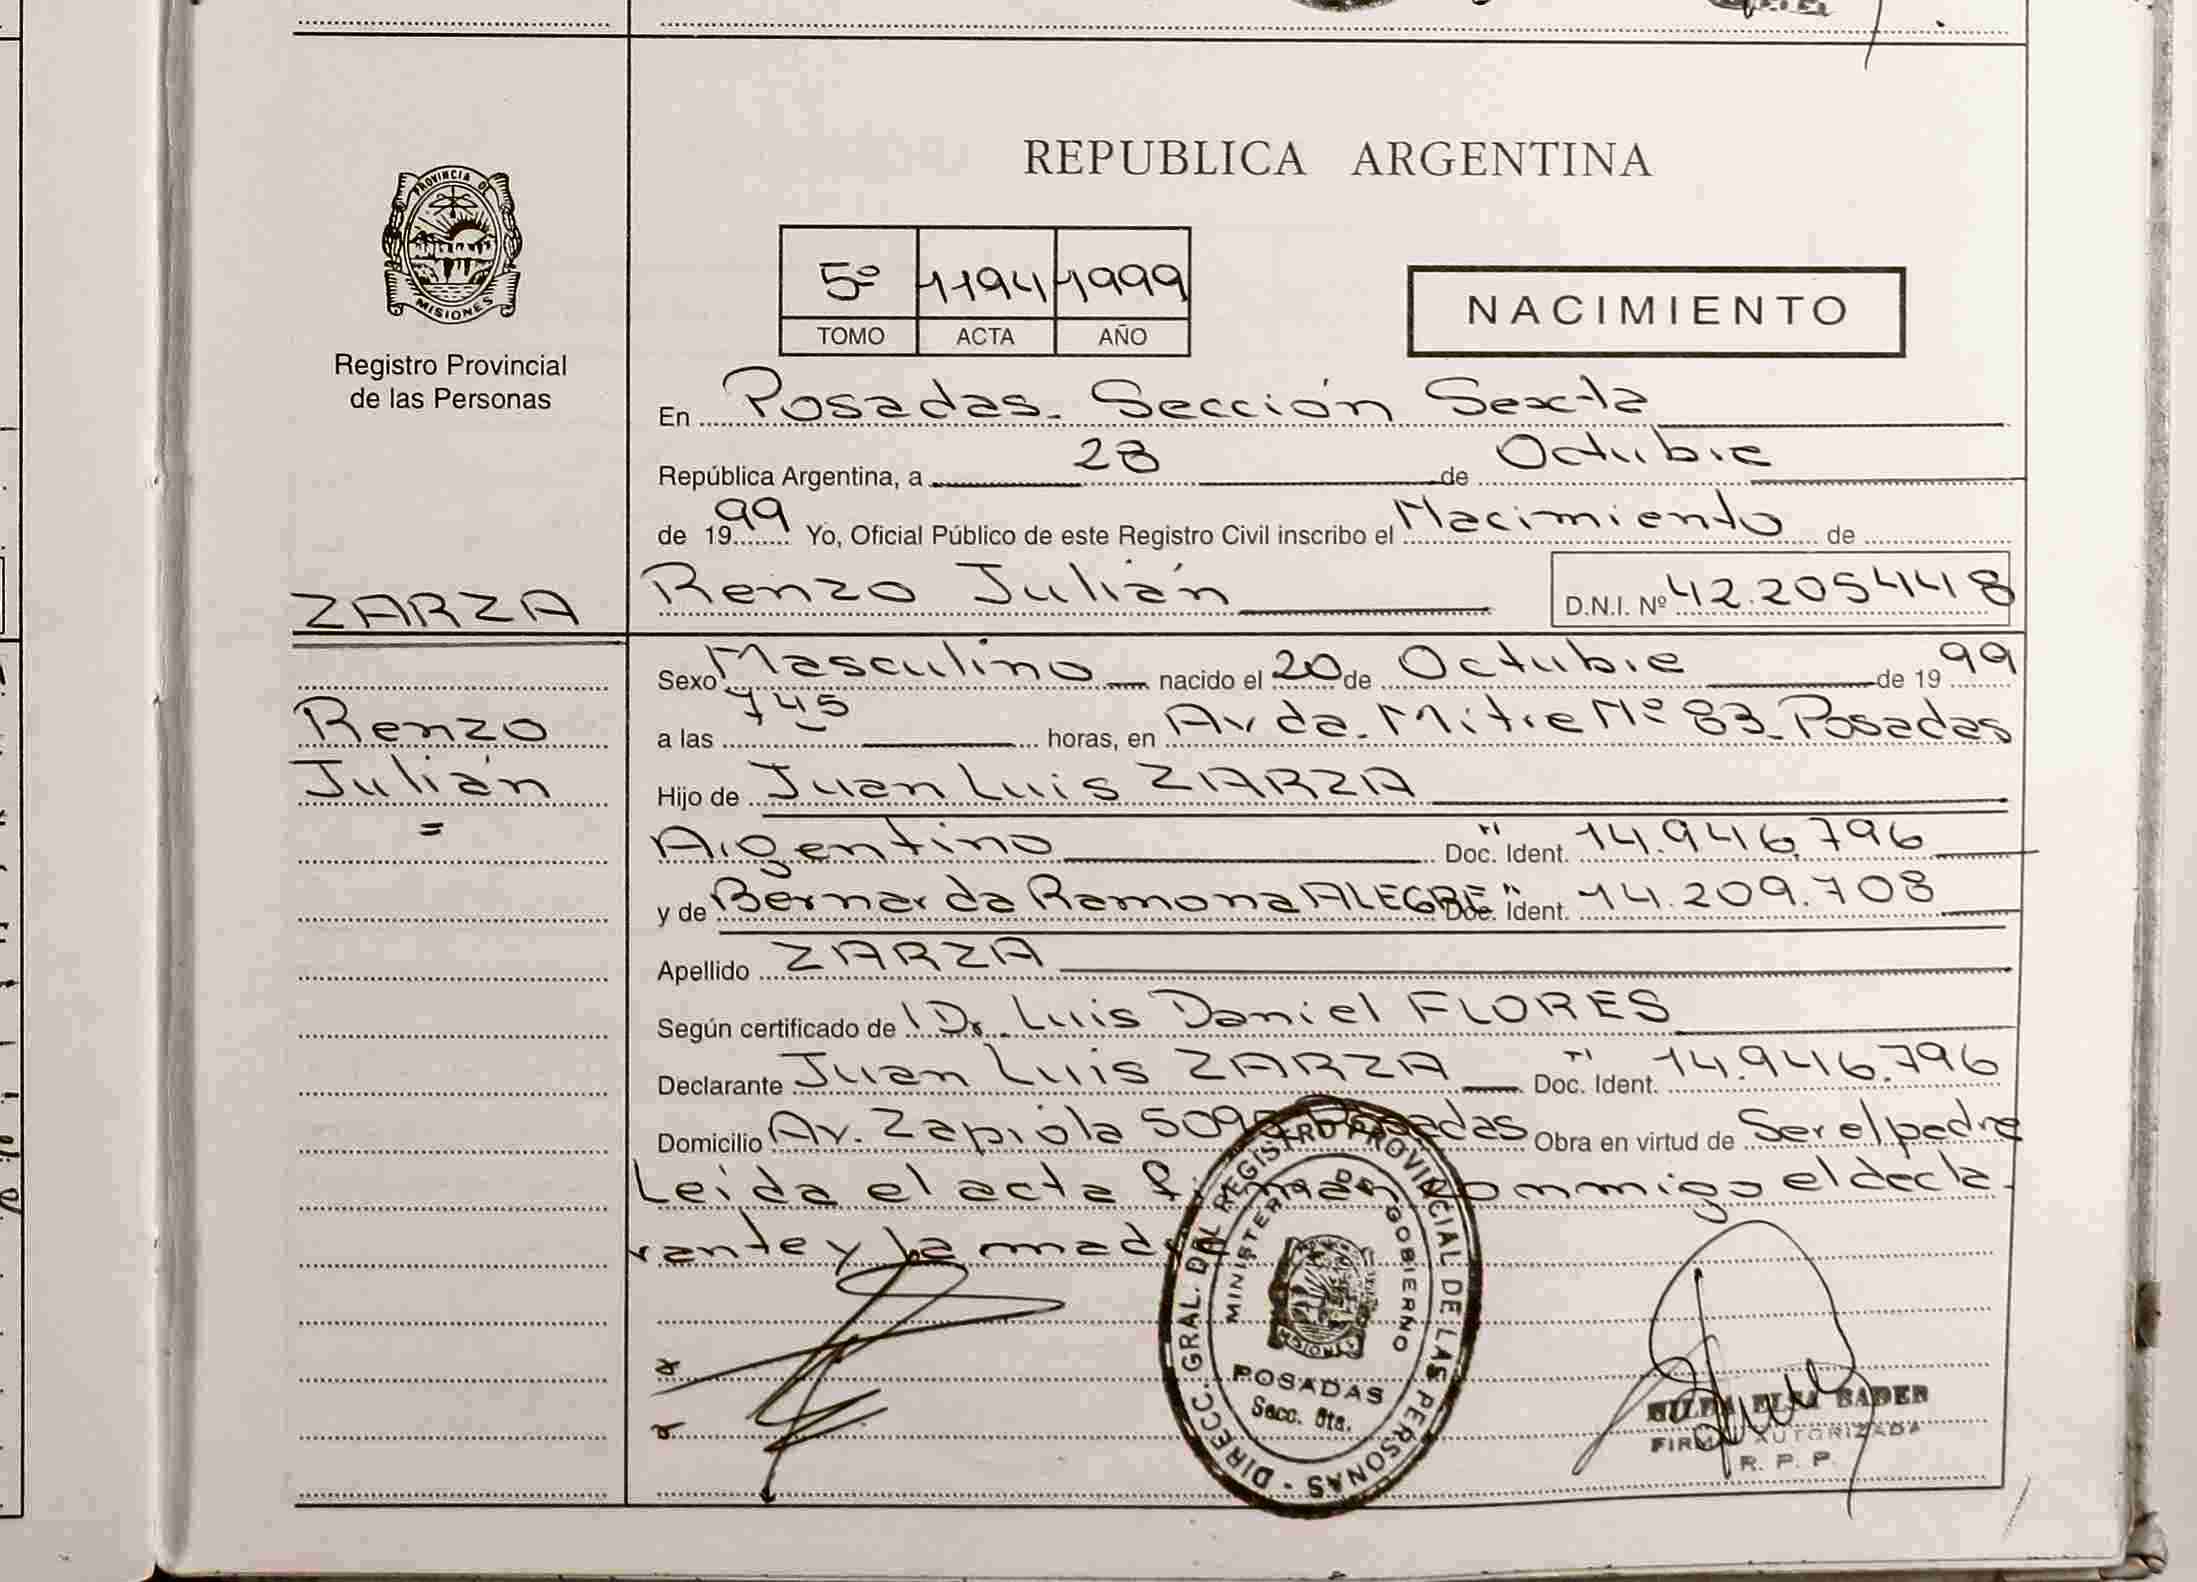 PROVINCIA DE
MISIONES
Registro Provincial
de las Personas
ZARZA
Renzo
Julián
=
REPUBLICA ARGENTINA
5º 1194 1999
TOMO ACTA AÑO
NACIMIENTO
En Posadas. Sección Sexta
República Argentina, a 28 de Octubre
de 1999 Yo, Oficial Público de este Registro Civil inscribo el Nacimiento de
Renzo Julián D.N.I. Nº 42.205448
Sexo Masculino nacido el 20 de Octubre de 1999
a las 745 horas, en Avda. Mitre Nº 83 Posadas
Hijo de Juan Luis ZARZA
Argentino Doc. Ident. 14.946.796
y de Bernarda Ramona ALEGRE Doc. Ident. 14.209.708
Apellido ZARZA
Según certificado de Dr. Luis Daniel FLORES
Declarante Juan Luis ZARZA Doc. Ident. 14.946.796
Domicilio Av. Zapiola Posadas Obra en virtud de Ser el padre
Leida el acta conmigo el decla-
rante y la
DIRECC. GRAL. DEL REGISTRO PROVINCIAL DE LAS PERSONAS
MINISTERIO DE GOBIERNO
MISIONES
POSADAS
Secc. 6ta.
ELSA BADER
FIRMA AUTORIZADA
R. P. P.